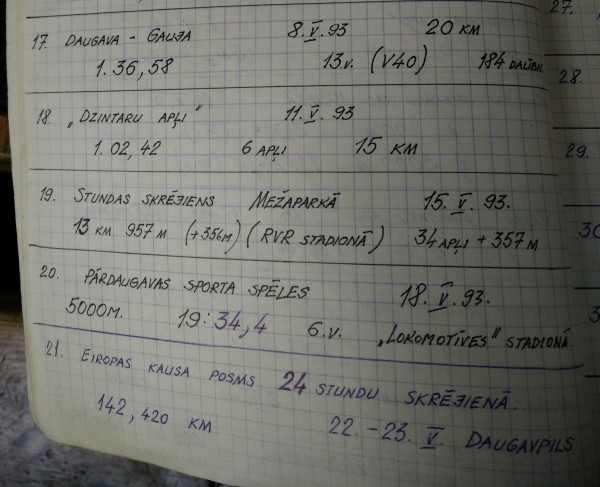 17. DAUGAVA - GAUJA 8. V. 93 20 KM
1. 36, 58 13 v. (V40) 184 DALĪBN.
18. „DZINTARU APĻI" 11. V. 93
1. 02, 42 6 APĻI 15 KM
19. STUNDAS SKRĒJIENS MEŽAPARKĀ 15. V. 93.
13 KM 957 M (+356M) (RVR STADIONĀ) 34 APĻI + 357 M
20. PĀRDAUGAVAS SPORTA SPĒLES 18. V. 93.
5000M. 19: 34,4 6. v. „LOKOMOTĪVES" STADIONĀ
21. EIROPAS KAUSA POSMS 24 STUNDU SKRĒJIENĀ.
142, 420 KM 22. - 23. V. DAUGAVPILS
27.
28.
29.
30